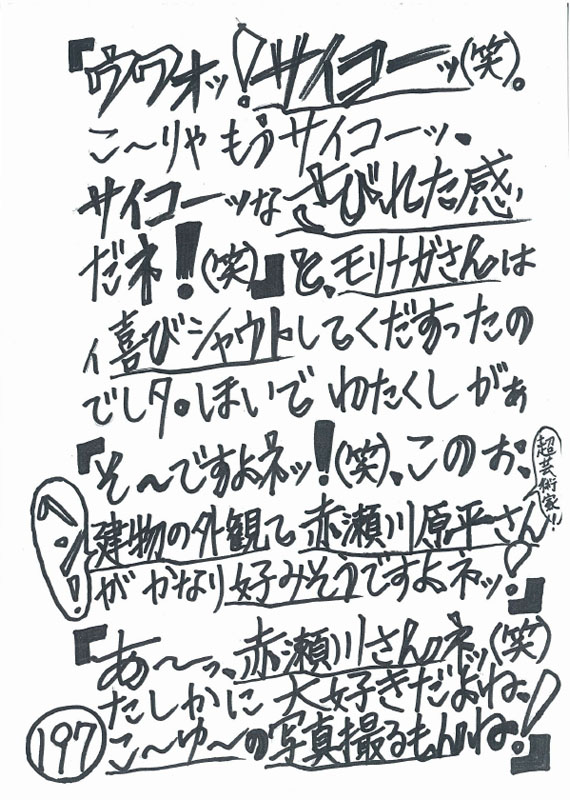 『ウワオッ!サイコーッ(笑)。
こ〜りゃもうサイコーッ。
サイコーッなさびれた感
だネ!(笑)』と、モリナガさんは
イ喜びシャウトしてくだすったの
でしタ。ほいでわたくしがぁ
『そ〜ですよネッ!(笑)、このお、
超芸術家!!
建物の外観て赤瀬川原平さん
ヘンー!
がかなり好みそうですよネッ!』
『あ〜っ、赤瀬川さんネッ(笑)
たしかに大好きだよね、
こ〜ゆ〜の写真撮るもんね!』
197